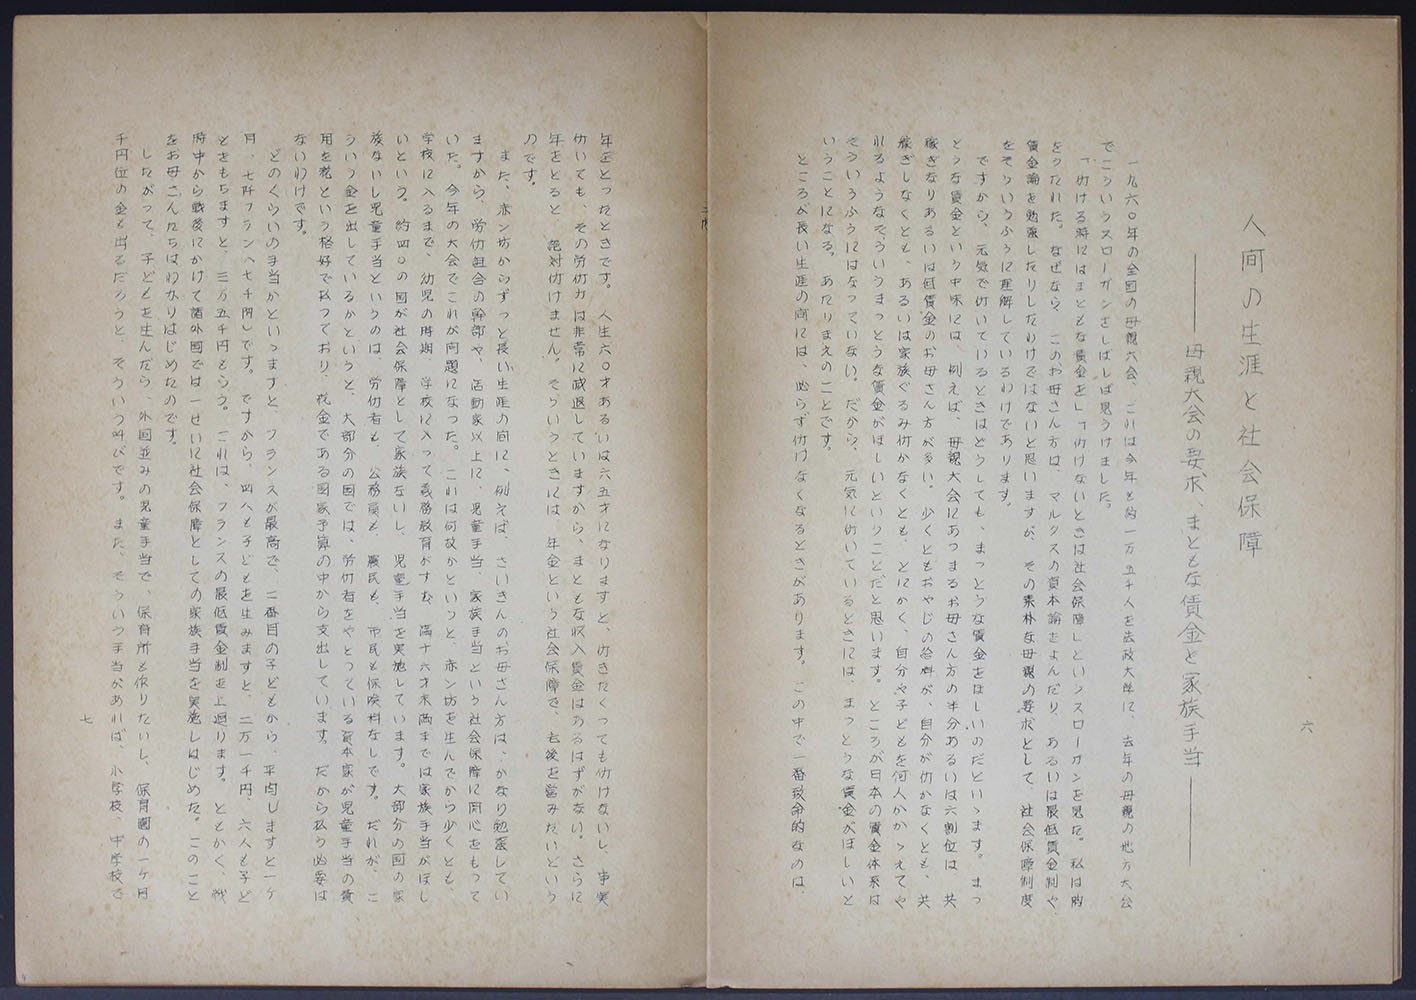 人間の生涯と社会保障
――母親大会の要求、まともな賃金と家族手当――
一九六〇年の全国の母親大会、これは今年も約一万五千人を法政大学に、去年の母親の地方大会
でこういうスローガンをしばしば見うけました。
「仂ける時にはまともな賃金を」「仂けないときは社会保障」というスローガンを見た。私は胸
をうたれた。なぜなら、このお母さん方は、マルクスの資本論をよんだり、あるいは最低賃金制や
賃金論を勉強したりしたわけではないと思いますが、その素朴な母親の要求として、社会保障制度
をそういうふうに理解しているわけであります。
ですから、元気で仂いているときはどうしても、まっとうな賃金をほしいのだといゝます。まっ
とうな賃金という中味には、例えば、母親大会にあつまるお母さん方の半分あるいは六割位は、共
稼ぎなりあるいは低賃金のお母さん方が多い。少くともおやじの給料が、自分が仂かなくとも、共
稼ぎしなくとも、あるいは家族ぐるみ仂かなくとも、とにかく、自分や子どもを何人かかゝえてや
れるようなそういうまっとうな賃金がほしいということだと思います。ところが日本の賃金体系は
そういうふうにはなっていない。だから、元気に仂いているときには、まっとうな賃金がほしいと
いうことになる。あたりまえのことです。
ところが長い生涯の間には、必らず仂けなくなるときがあります。この中で一番致命的なのは、
六
年をとったときです。人生六〇才あるいは六五才になりますと、仂きたくっても仂けないし、事実
仂いても、その労仂力は非常に減退していますから、まともな収入賃金はあるはずがない。さらに
年をとると、絶対仂けません。そういうときには、年金という社会保障で、老後を営みたいという
のです。
また、赤ン坊からずっと長い生涯の間に、例えば、さいきんのお母さん方は、かなり勉強してい
ますから、労仂組合の幹部や、活動家以上に、児童手当、家族手当という社会保障に関心をもって
いた。今年の大会でこれが問題になった。これは何故かというと、赤ン坊を生んでから少くとも、
学校に入るまで、幼児の時期、学校に入って義務教育がすむ、満十六才未満までは家族手当がほし
いという。約四〇の国が社会保障として家族ないし、児童手当を実施しています。大部分の国の家
族ないし児童手当というのは、労仂者も、公務員も、農民も、市民も保険料なしです。だれが、こ
ういう金を出しているかというと、大部分の国では、労仂者をやとっている資本家が児童手当の費
用を税という格好で払っており、税金である国家予算の中から支出しています。だから払う必要は
ないわけです。
どのくらいの手当かといゝますと、フランスが最高で、二番目の子どもから、平均しますと一ケ
月、七阡フラン（七千円）です。ですから、四人も子どもを生みますと、二万一千円、六人も子ど
ときもちますと、三万五千円もらう。これは、フランスの最低賃金制を上廻ります。ともかく、戦
時中から戦後にかけて諸外国では一せいに社会保障としての家族手当を実施しはじめた。このこと
をお母さんたちはわかりはじめたのです。
したがって、子どもを生んだら、外国並みの児童手当で、保育所も作りたいし、保育園の一ケ月
千円位の金も出るだろうと、そういう叫びです。また、そういう手当があれば、小学校、中学校で
七